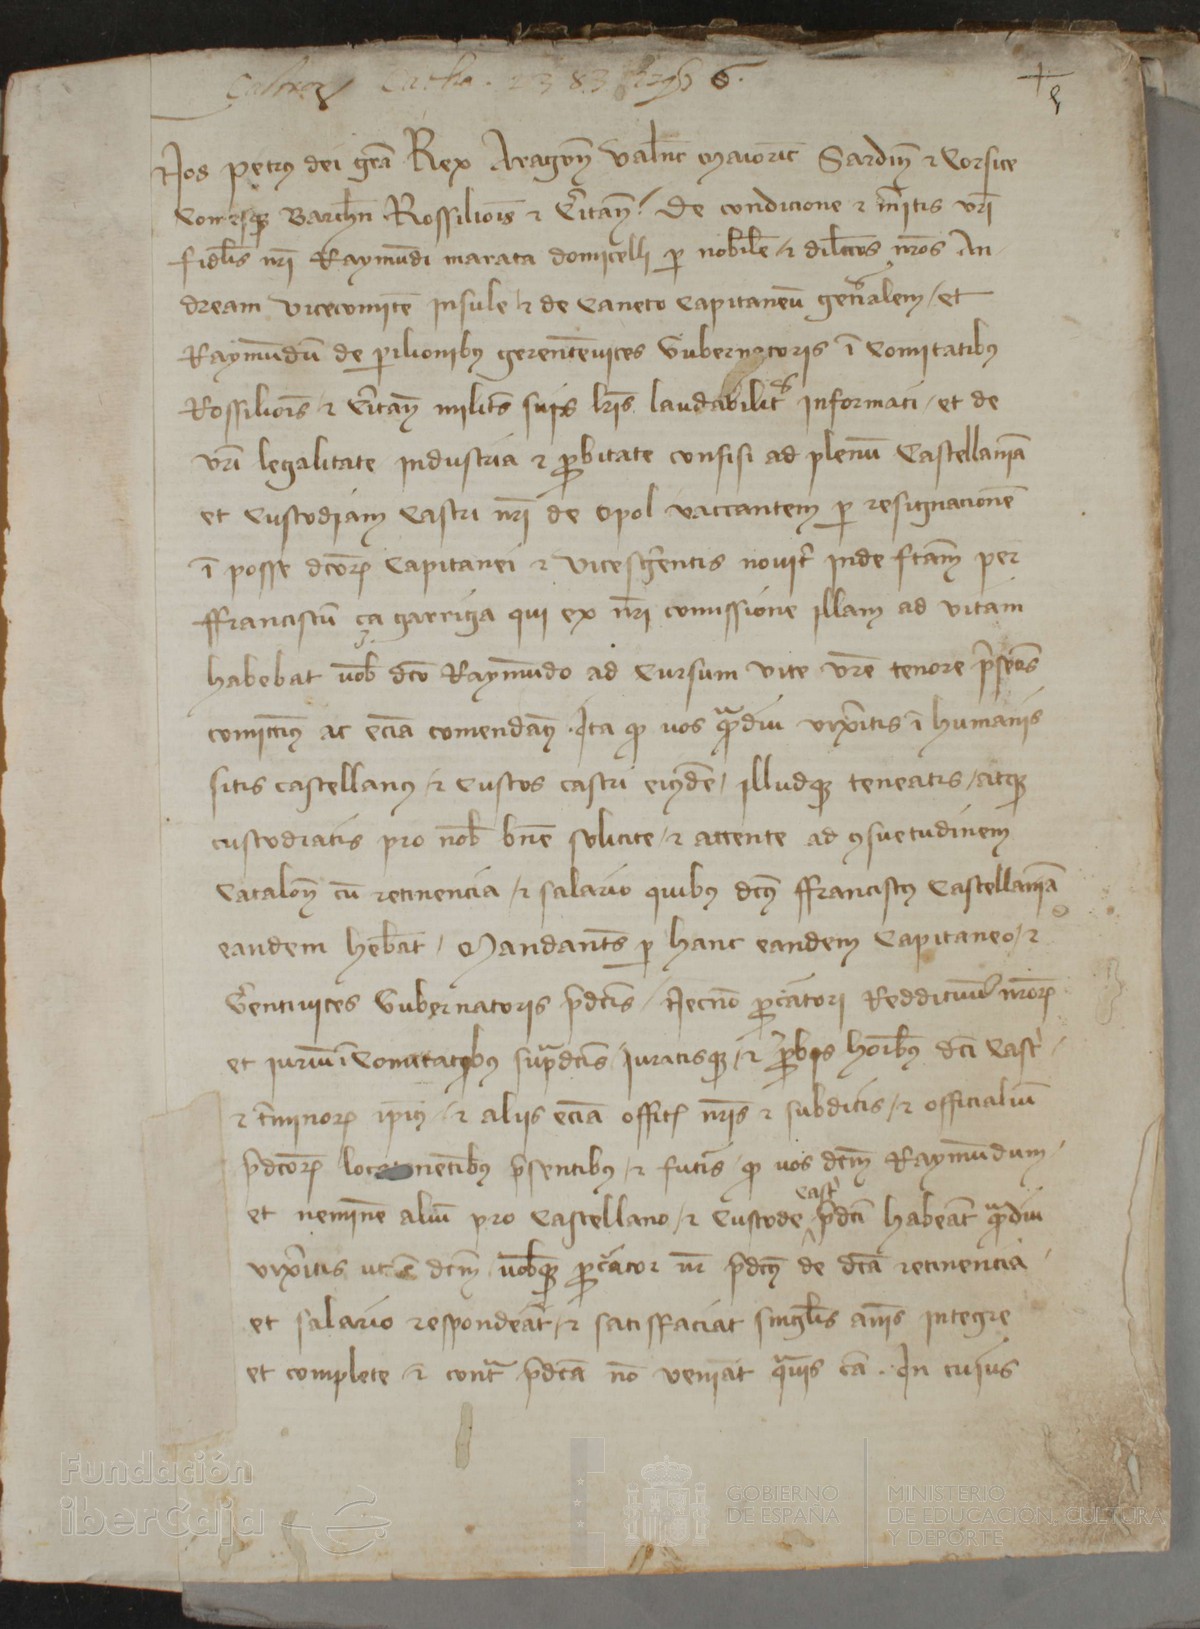 Nos Petrus dei gra Rex Aragon Valenc Maioric Sardin et Corsice
Comesque Barchn Rossilionis et Ceritan. De condicione et meritis vri
fidelis nri Raymundi marata domicelli per nobile et dilcos nros An
dream vicecomite Insule et de Caneto Capitaneu generalem / et
Raymundu de perilionibus gerentevices Gubernatoris i Comitatibus
Rossilionis et Ceritan milites suis lris laudabiliter informati / et de
vri legalitate industria et probitate confisi ad plenu Castellania
et Custodiam Castri nri de Opol vaccantem per resignacione
i posse dcorum Capitanei et Vicesgerentis noviter inde fctam per
ffranciscu ça garriga qui ex nri comissione illam ad vitam
habebat vob dco Raymundo ad Cursum vite vre tenore presentis
comittimus ac ecia comendamus. Ita quod vos quamdiu vixeritis i humanis
sitis castellanus / et Custos castri eiusde / illudque teneatis / atque
custodiatis pro nob bne solicite / et attente ad consuetudinem
Catalon cu retinencia / et salario quibus dcus ffranciscus Castellania
eandem hebat / Mandantes per hanc eandem Capitaneo / et
Gerentivices Gubernatoris predcis / Necno procuratori Reddituum nrorum
et iuriu i Comitatibus supradcis / Iuratisque / et probis hoibus dci Castri
et terminorum ipius / et aliis ecia officiis nris et subditis / et officialiu
predcorum locatenentibus presentibus / et futuris / quod vos dcum Raymundum
et nemine aliu pro Castellano / et Custode castri predci habeant quamdiu
vixeritis ut e dcum vobisque procurator nr predcus de dca retinencia
et salario respondeat / et satisffaciat singulis annis integre
et complete et contra predca no veniat quavis ca. In cuius
Fundación
iberCaja
GOBIERNO
DE ESPAÑA
MINISTERIO
DE EDUCACIÓN, CULTURA
Y DEPORTE